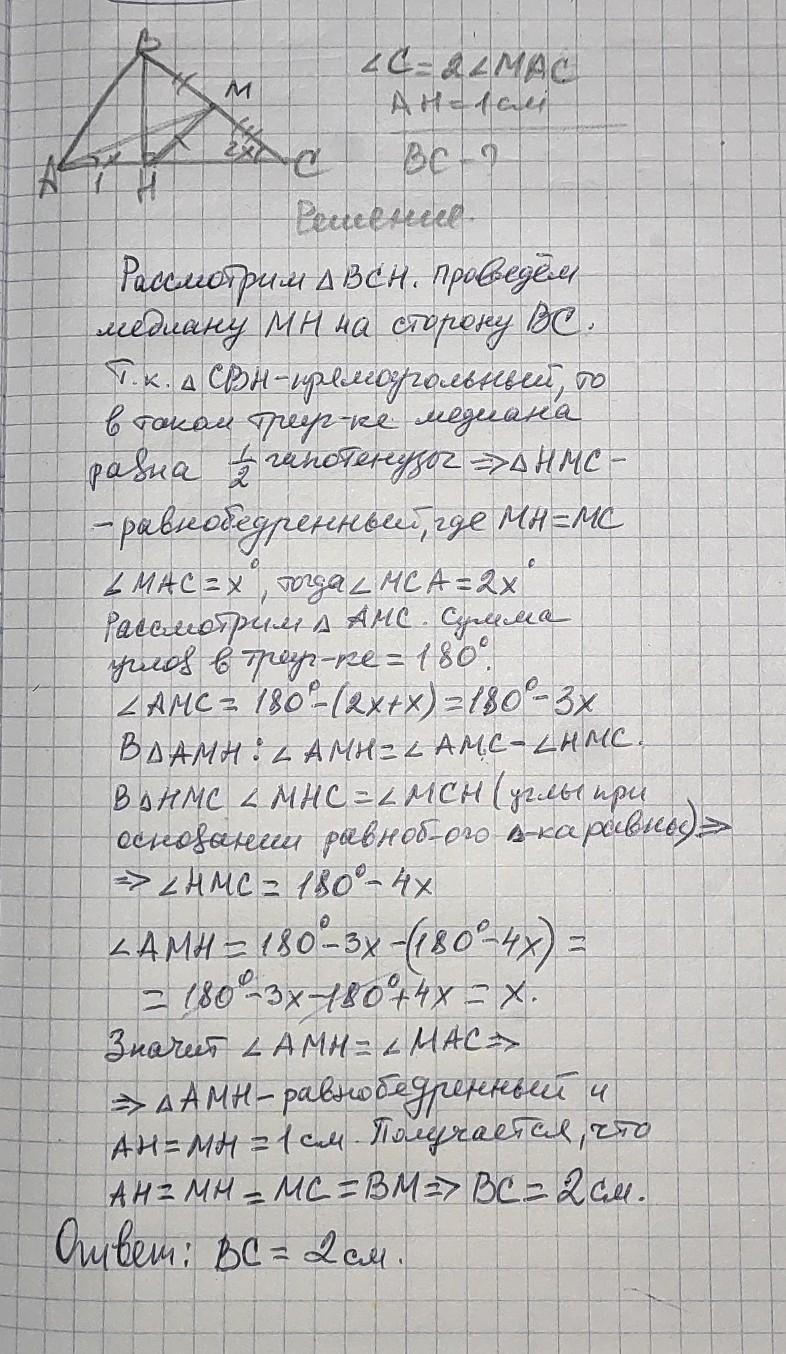 B
M
A
1
x
H
2x
C
∠C=2∠MAC
AH=1см
BC-?
Решение.
Рассмотрим △BCH. Проведём
медиану MH на сторону BC.
Т.к. △CBH-прямоугольный, то
в таком треуг-ке медиана
равна 1/2 гипотенузы ⇒△HMC-
-равнобедренный, где MH=MC
∠MAC=x°, тогда ∠MCA=2x°
Рассмотрим △AMC. Сумма
углов в треуг-ке=180°.
∠AMC=180°-(2x+x)=180°-3x
В△AMH: ∠AMH=∠AMC-∠HMC.
В△HMC ∠MHC=∠MCH (углы при
основании равноб-ого △-ка равны)⇒
⇒∠HMC=180°-4x
∠AMH=180°-3x-(180°-4x)=
=180°-3x-180°+4x=x.
Значит ∠AMH=∠MAC⇒
⇒△AMH-равнобедренный и
AH=MH=1см. Получается, что
AH=MH=MC=BM⇒BC=2см.
Ответ: BC=2см.